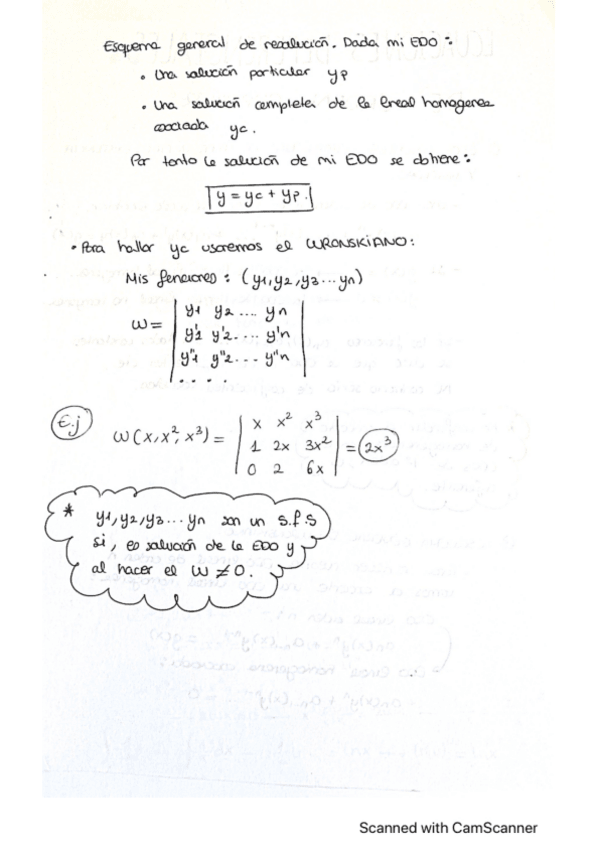 Esquema general de resolución. Dada mi EDO:
• Una solución particular yp
• Una solución completa de la lineal homogenea
asociada yc.
Por tanto la solución de mi EDO se obtiene:
y = yc + yp.
• Para hallar yc usaremos el WRONSKIANO:
Mis funciones: (y1, y2, y3 ... yn)
W = | y1 y2 .... yn |
| y'1 y'2. ... y'n |
| y''1 y''2. .. y''n |
. . . .
E.j
W(x, x², x³) = | x x² x³ |
| 1 2x 3x² | = 2x³
| 0 2 6x |
* y1, y2, y3 ... yn son un s.f.s
si, es solución de la EDO y
al hacer el W ≠ 0.
Scanned with CamScanner